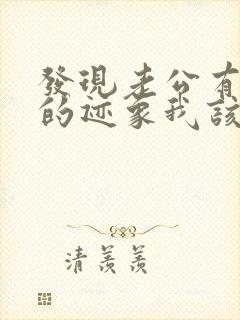 發現老公有
的迹象我該
清羨羨